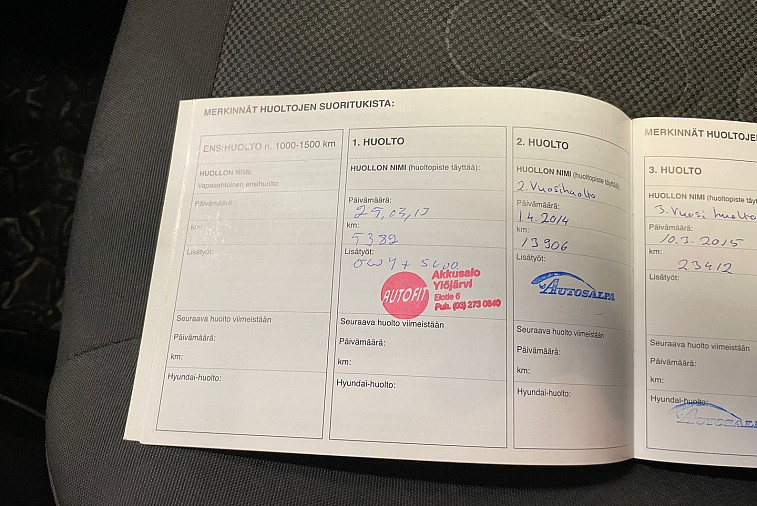 MERKINNÄT HUOLTOJEN SUORITUKISTA:
ENSIHUOLTO n. 1000-1500 km
HUOLLON NIMI:
Vapaaehtoinen ensihuolto
Päivämäärä:
km:
Lisätyöt:
Seuraava huolto viimeistään
Päivämäärä:
km:
Hyundai-huolto:
1. HUOLTO
HUOLLON NIMI (huoltopiste täyttää):
Päivämäärä:
25,03,13
km:
5382
Lisätyöt:
AUTOFIT
Akkusalo
Ylöjärvi
Elotie 6
Puh. (03) 273 0840
Seuraava huolto viimeistään
Päivämäärä:
km:
Hyundai-huolto:
2. HUOLTO
HUOLLON NIMI (huoltopiste täyttää)
2. Vuosihuolto
Päivämäärä:
1.4.2014
km:
13906
Lisätyöt:
AUTOSALPA
Seuraava huolto viimeistään
Päivämäärä:
km:
Hyundai-huolto:
MERKINNÄT HUOLTOJE
3. HUOLTO
HUOLLON NIMI (huoltopiste täyt
3. Vuosi huolto
Päivämäärä:
10.3.2015
km:
23412
Lisätyöt:
Seuraava huolto viimeistään
Päivämäärä:
km:
Hyundai-huolto:
AUTOSALP